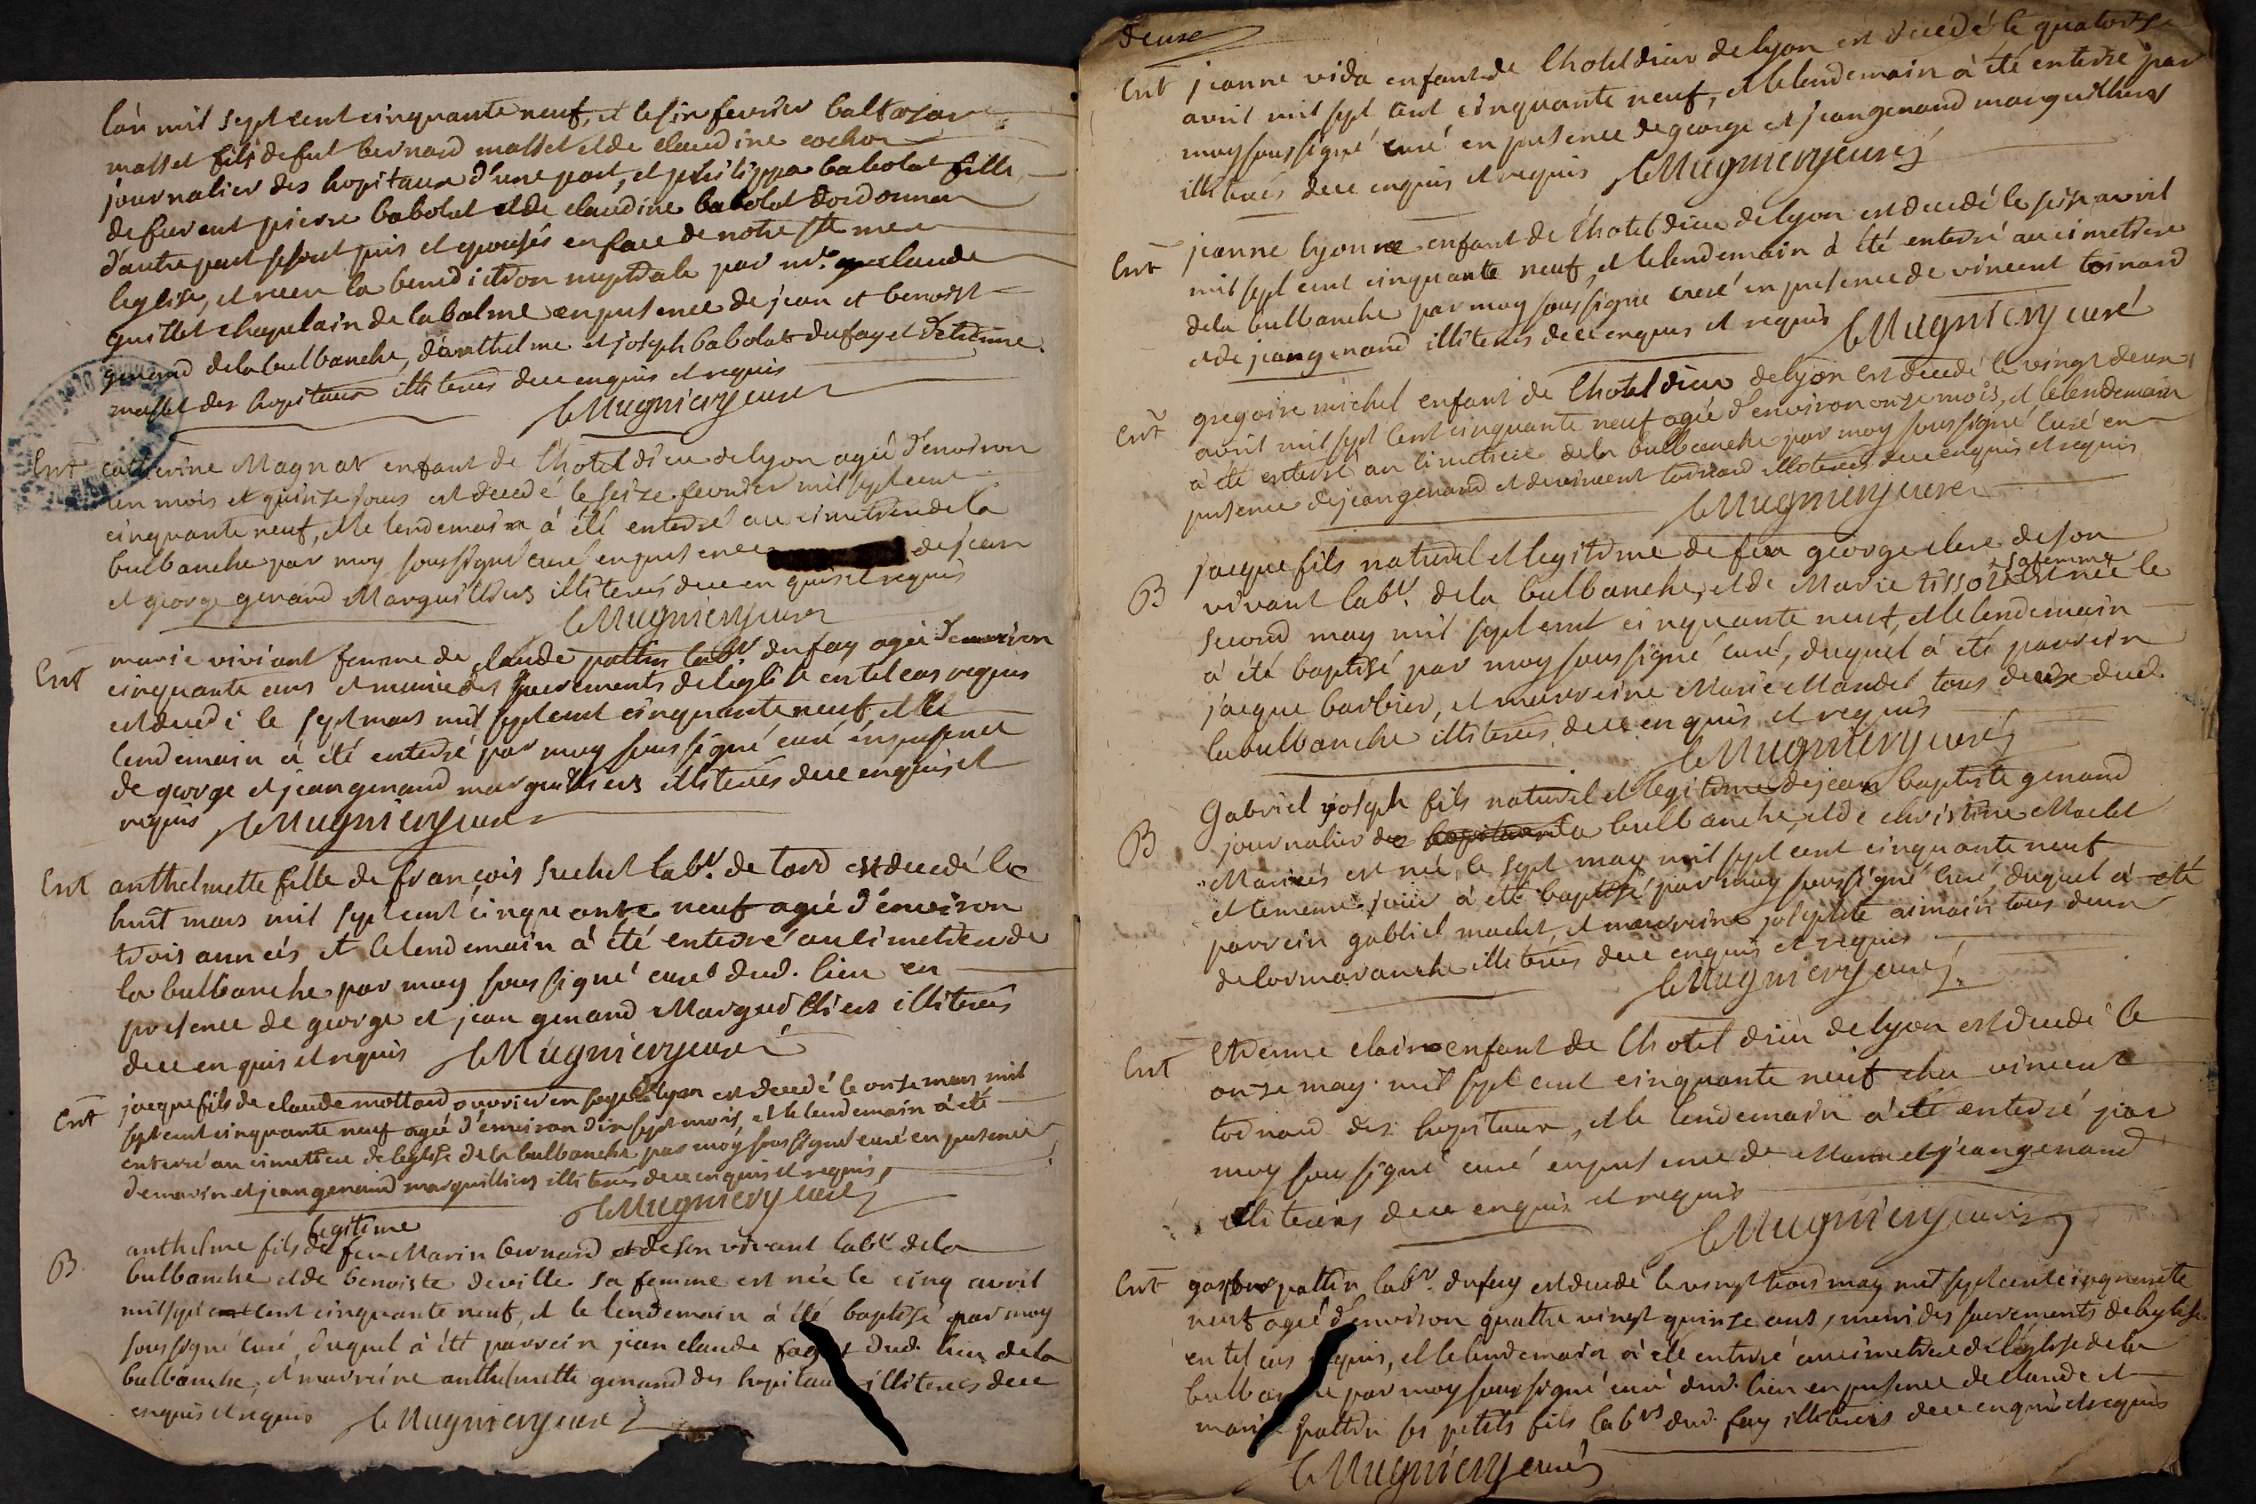 lan mil sept cent cinquante neuf, et le six fevrier baltazar
masset fils de fut bernard masset et de claudine cochon
journalier des hopitaux d'une part, et philippa babolat fille
de fuient pierre babolat et de claudine babolat dordonnan
d'autre part se sont pris et epousés en face de notre ste mere
leglise, et receu la benediction nuptiale par mr. claude
quillet chapelain de la balme en presence de jean et benoist
genand de la bulbanche, d'anthelme et joseph babolat du fay et detienne
masset des hopitaux illiteres dece enquis et requis
leMugniery curé
Ent catherine Magnat enfant de l'hotel dieu de lyon agée d'environ
un mois et quinze jours est decedé le seize fevrier mil sept cent
cinquante neuf, et le lendemain à été enterré au cimetiere de la
bulbanche par moy soussigné curé en presence de jean
et george genand Marguilliers illiterés dece enquis et requis
leMugniery curé
Ent marie viviant femme de claude pattin labr. du fay agée d'environ
cinquante ans et munie des sacrements de leglise en tel cas requis
est decedé le sept mars mil sept cent cinquante neuf, et le
lendemain à été enterré par moy soussigné curé en presence
de george et jean genand marguilliers illiterés dece enquis et
requis leMugniery curé
Ent anthelmette fille de françois suchet labr. de tord est decedé le
huit mars mil sept cent cinquante neuf agée d'environ
trois années et le lendemain à été enterré au cimetiere de
la bulbanche par moy soussigné curé dud. lieu en
presence de george et jean genand Marguilliers illiterés
dece enquis et requis leMugniery curé
Ent jacque fils de claude mottard ouvrier en soye de lyon est decedé le onze mars mil
sept cent cinquante neuf agée d'environ dix sept mois, et le lendemain à été
enterré au cimetiere de leglise de la bulbanche par moy soussigné curé en presence
de marin et jean genand marguilliers illiterés dece enquis et requis
leMugniery curé
legitime
B anthelme fils de feu Marin bernard et de son vivant labr. de la
bulbanche et de benoiste deville sa femme est née le cinq avril
mil sept cent cinquante neuf, et le lendemain à été baptisé par moy
soussigné curé, duquel à été parrein jean claude dud. lieu de la
bulbanche, et marreine anthelmette genand des hopitaux illiterés dece
enquis et requis leMugniery curé
deuxe
Ent jeanne vida enfant de lhotel dieu de lyon est decedé le quatorze
avril mil sept cent cinquante neuf, et le lendemain à été enterré par
moy soussigné curé en presence de george et jean genand marguilliers
illiterés dece enquis et requis leMugniery curé
Ent jeanne lyonne enfant de lhotel dieu de lyon est decedé le seize avril
mil sept cent cinquante neuf, et le lendemain à été enterré au cimetiere
de la bulbanche par moy soussigné curé en presence de vincent toinard
et de jean genand illiterés dece enquis et requis leMugniery curé
Ent gregoire michel enfant de lhotel dieu de lyon est decedé le vingt deux
avril mil sept cent cinquante neuf agée d'environ onze mois, et le lendemain
à été enterré au cimetiere de la bulbanche par moy soussigné curé en
presence de jean genand et de vincent toinard illiterés dece enquis et requis
leMugniery curé
B jacque fils naturel et legitime de feu george clere de son
vivant labr. de la bulbanche, et de Marie tissot sa femme est née le
second may mil sept cent cinquante neuf, et le lendemain
à été baptisé par moy soussigné curé, duquel à été parrein
jacque barbier, et marreine Marie Mandet tous deux dud.
la bulbanche illiterés dece enquis et requis
leMugniery curé
B Gabriel joseph fils naturel et legitime de jean baptiste genand
journalier de la bulbanche, et de christine Maclet
Mariés est née le sept may mil sept cent cinquante neuf
et le meme jour à été baptisé par moy soussigné curé, duquel à été
parrein gabriel maclet, et marreine josephte aimain tous deux
de lormaranche illiterés dece enquis et requis
leMugniery curé
Ent etienne clair enfant de lhotel dieu de lyon est decedé le
onze may mil sept cent cinquante neuf chez vincent
toinard des hopitaux, et le lendemain à été enterré par
moy soussigné curé en presence de Marin et jean genand
illiterés dece enquis et requis
leMugniery curé
Ent gaspar pattin labr. du fay est decedé le vingt trois may mil sept cent cinquante
neuf agée d'environ quatre vingt quinze ans, muni des sacrements de leglise
en tel cas requis, et le lendemain à été enterré au cimetiere de leglise de la
bulbanche par moy soussigné curé dud. lieu en presence de claude et
marin pattin ses petits fils labrs dud. fay illiterés dece enquis et requis
leMugniery curé